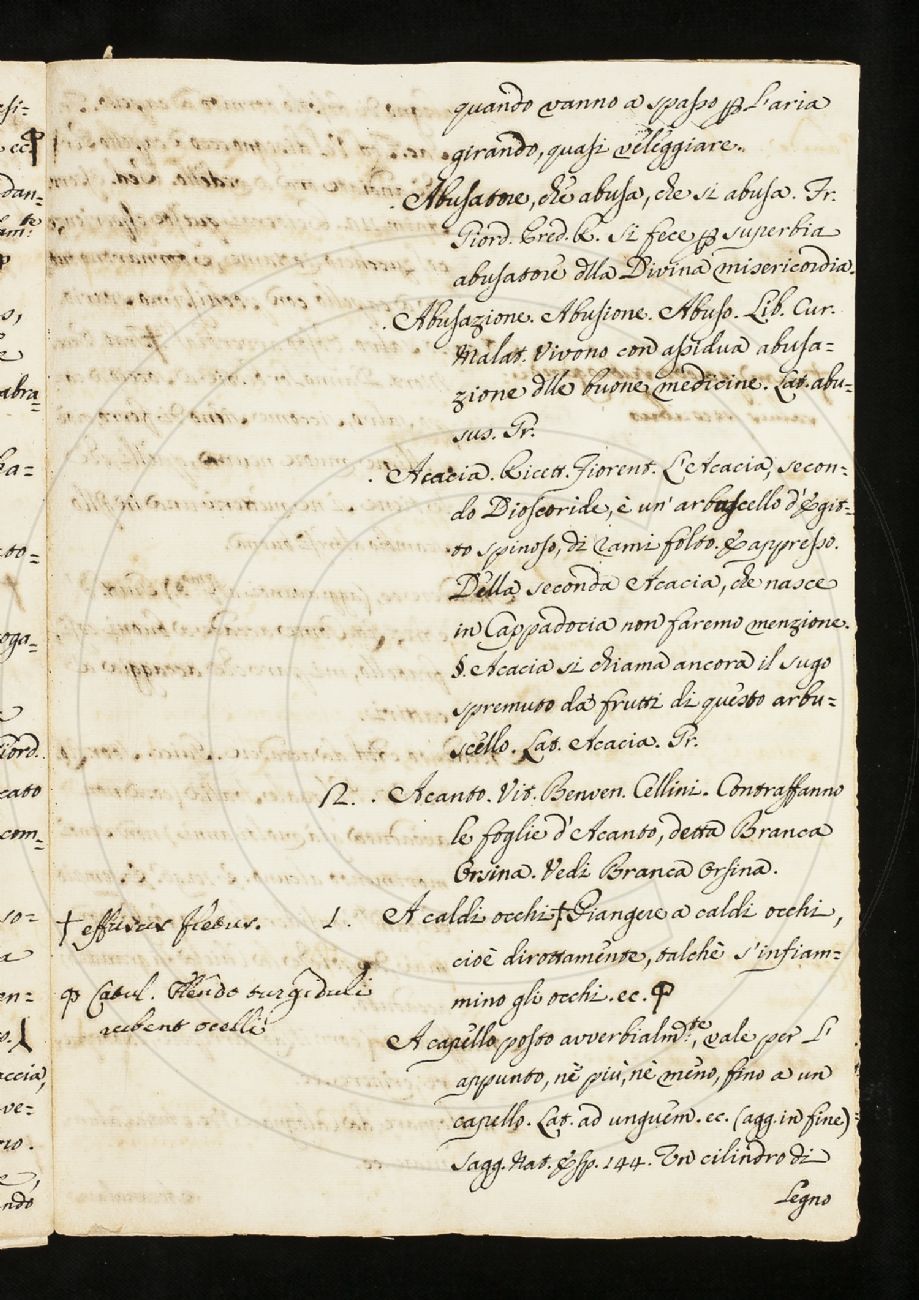 quando vanno a spasso ꝑ l'aria
girando, quasi veleggiare.
. Abusatore, che abusa, che si abusa. Fr.
Giord. Pred. R. Si fece ꝑ superbia
abusatore dlla Divina misericordia.
. Abusazione. Abusione. Abuso. Lib. Cur.
Malat. Vivono con assidua abusa=
zione dlle buone medicine. Lat. abu=
sus. Gr.
. Acacia. Ricett. Fiorent. L'Acacia, secon=
do Dioscoride, è un' arbuscello d'Egit=
to spinoso, di rami folto. E appresso.
Della seconda Acacia, che nasce
in Cappadocia non faremo menzione.
§. Acacia si chiama ancora il sugo
spremuto da frutti di questo arbu=
scello. Lat. Acacia. Gr.
. Acanto. Vit. Benven. Cellini. Contraffanno
le foglie d'Acanto, detta Branca
Orsina. Vedi Branca Orsina.
1. A caldi occhi † Piangere a caldi occhi,
cioè dirottamente, talchè s'infiam=
mino gli occhi. ec. ꟼ
† effusus fletus.
ꟼ Catul. Flendo turgiduli
rubent ocelli
A capello posto avverbialm.te, vale per l'
appunto, nè più, nè meno, fino a un
capello. Lat. ad unguem. ec. (agg. in fine)
Sagg. Nat. Esp. 144. Un cilindro di
legno